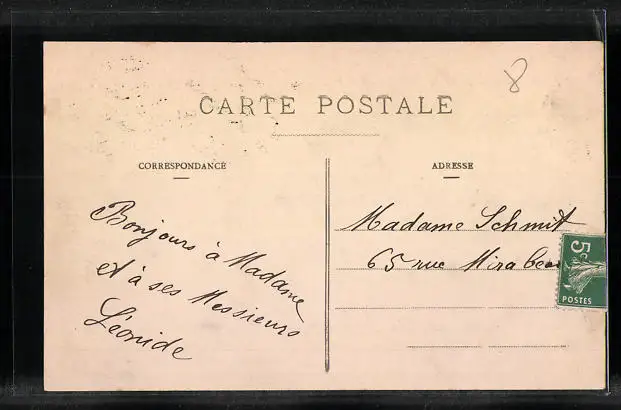 8
CARTE POSTALE
CORRESPONDANCE
ADRESSE
Bonjours à Madame
et à ses Messieurs
Léonide
Madame Schmit
65 rue Mirabeau
5c
POSTES